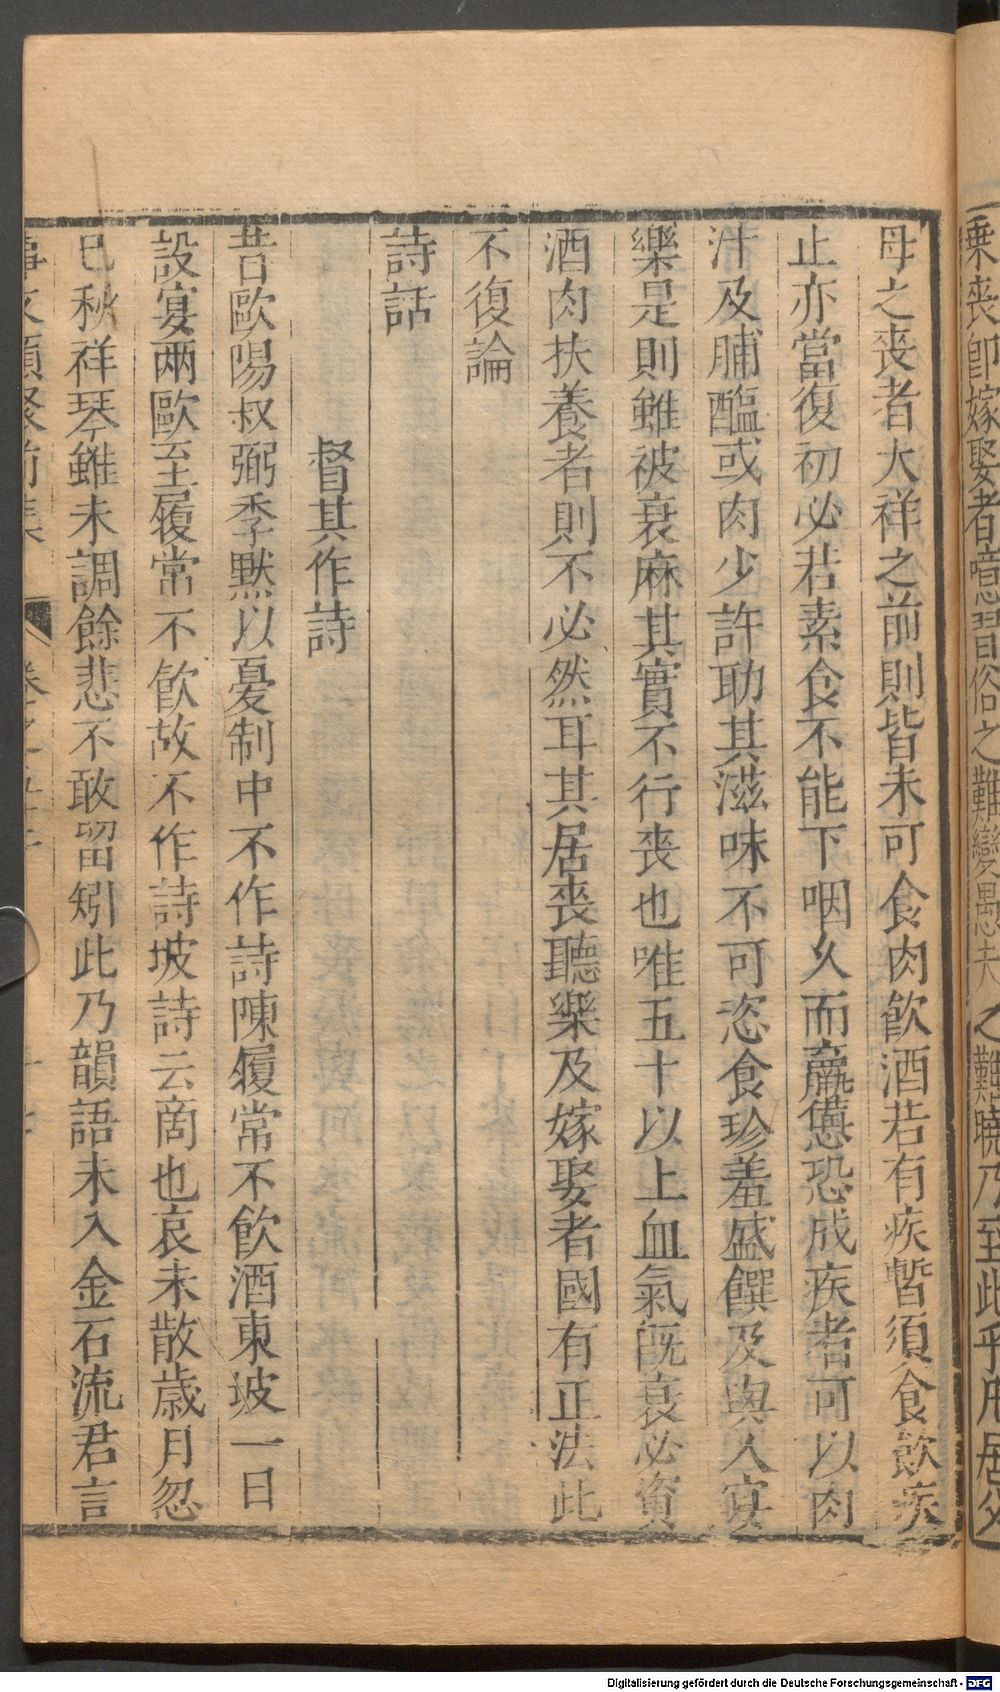 乘喪卽嫁娶者噫習俗之難變愚夫之難曉乃至此乎凡居父
母之喪者大祥之前則皆未可食肉飮酒若有疾暫須食飮疾
止亦當復初必若素食不能下咽久而羸憊恐成疾者可以肉
汁及脯醢或肉少許助其滋味不可恣食珍羞盛饌及與人宴
樂是則雖被衰麻其實不行喪也唯五十以上血氣旣衰必資
酒肉扶養者則不必然耳其居喪聽樂及嫁娶者國有正法此
不復論
詩話
督其作詩
昔歐陽叔弼季默以憂制中不作詩陳履常不飮酒東坡一日
設宴兩歐至履常不飮故不作詩坡詩云啇也哀未散歳月忽
已秋祥琴雖未調餘悲不敢留矧此乃韻語未入金石流君言
事文類聚前集 卷之五十
Digitalisierung gefördert durch die Deutsche Forschungsgemeinschaft - DFG